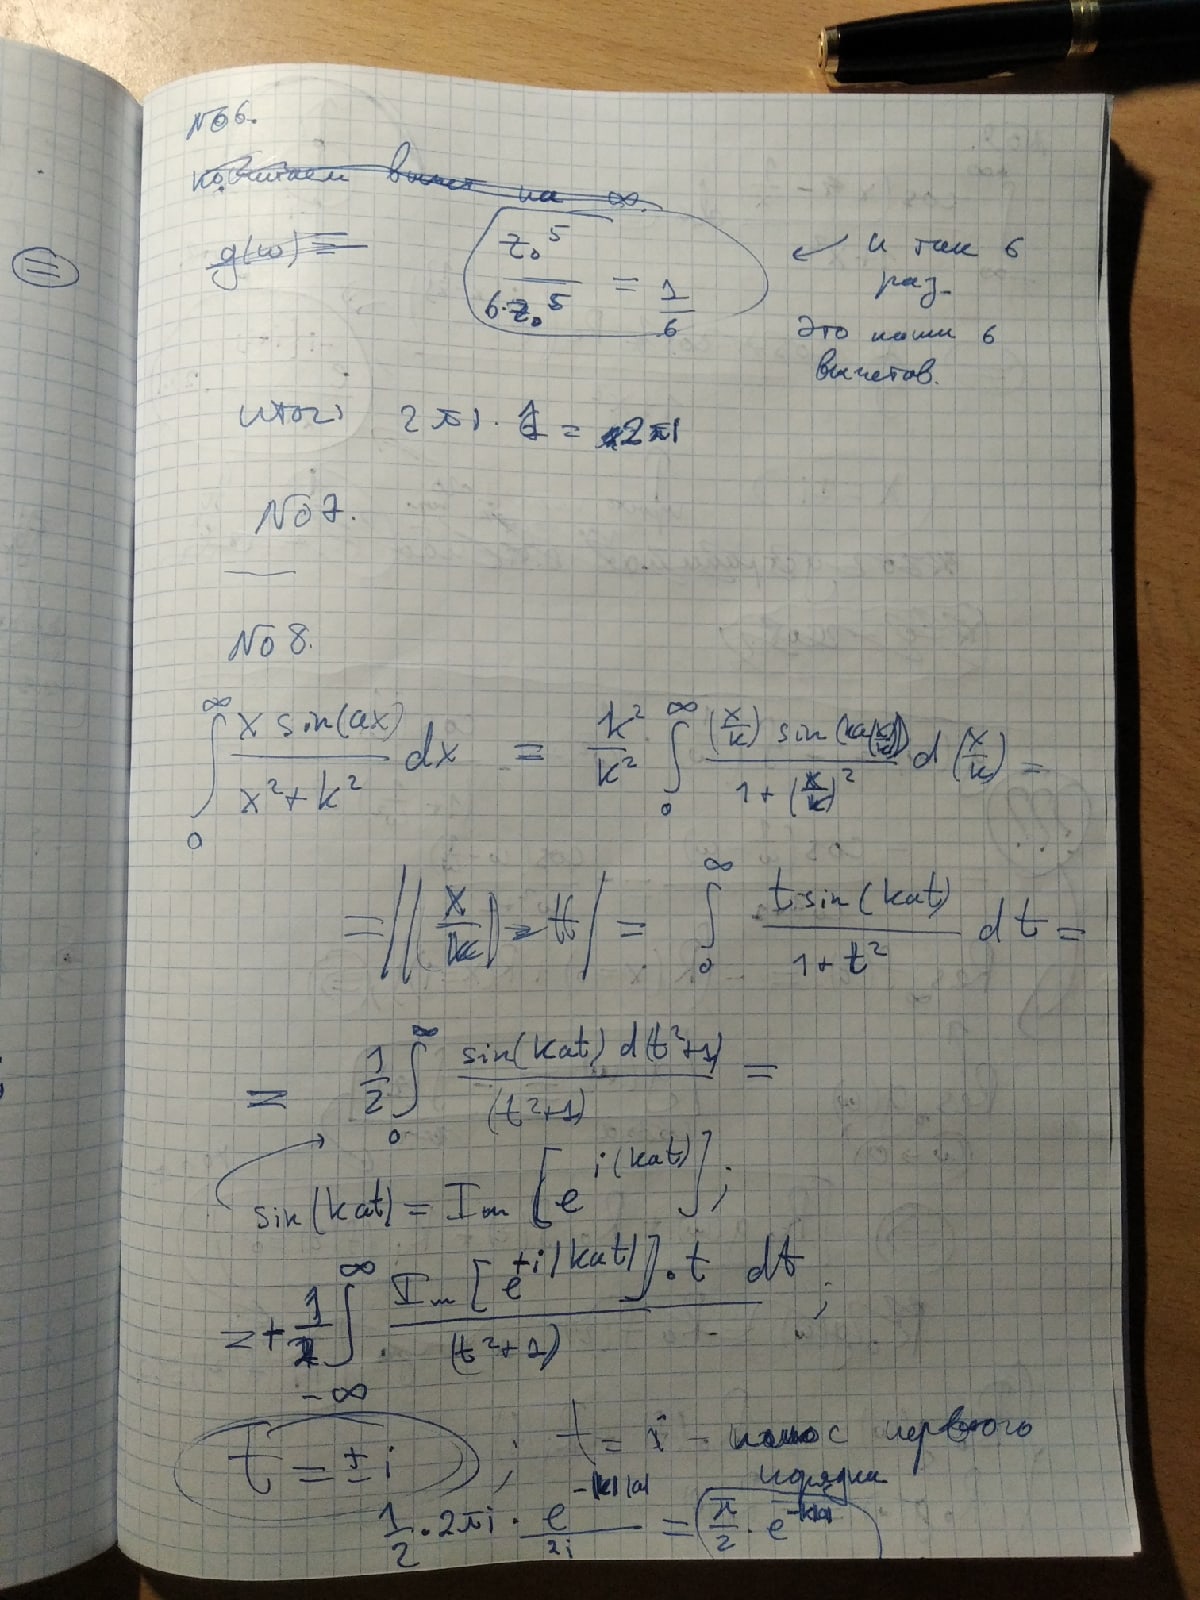 №6.
посчитаем вычет на ∞.
g(w) =
z₀⁵ / 6·z₀⁵ = 1/6
и так 6
раз.
Это наши 6
вычетов.
итог: 2πi · 1 = 2πi
№7.
—
№8.
∫₀^∞ x sin(ax) / (x² + k²) dx = k²/k² ∫₀^∞ (x/k) sin(ka(x/k)) / (1 + (x/k)²) d(x/k) =
= |(x/k) = t| = ∫₀^∞ t sin(kat) / (1 + t²) dt =
= 1/2 ∫₀^∞ sin(kat) d(t²+1) / (t²+1) =
sin(kat) = Im [e^{i(kat)}];
= + 1/2 ∫_{-∞}^∞ Im [e^{+i(kat)}] · t dt / (t²+1) ;
t = ± i ; t = i – полюс первого
порядка
1/2 · 2πi · e^{-|k||a|} / 2i = π/2 · e^{-|k|a|}